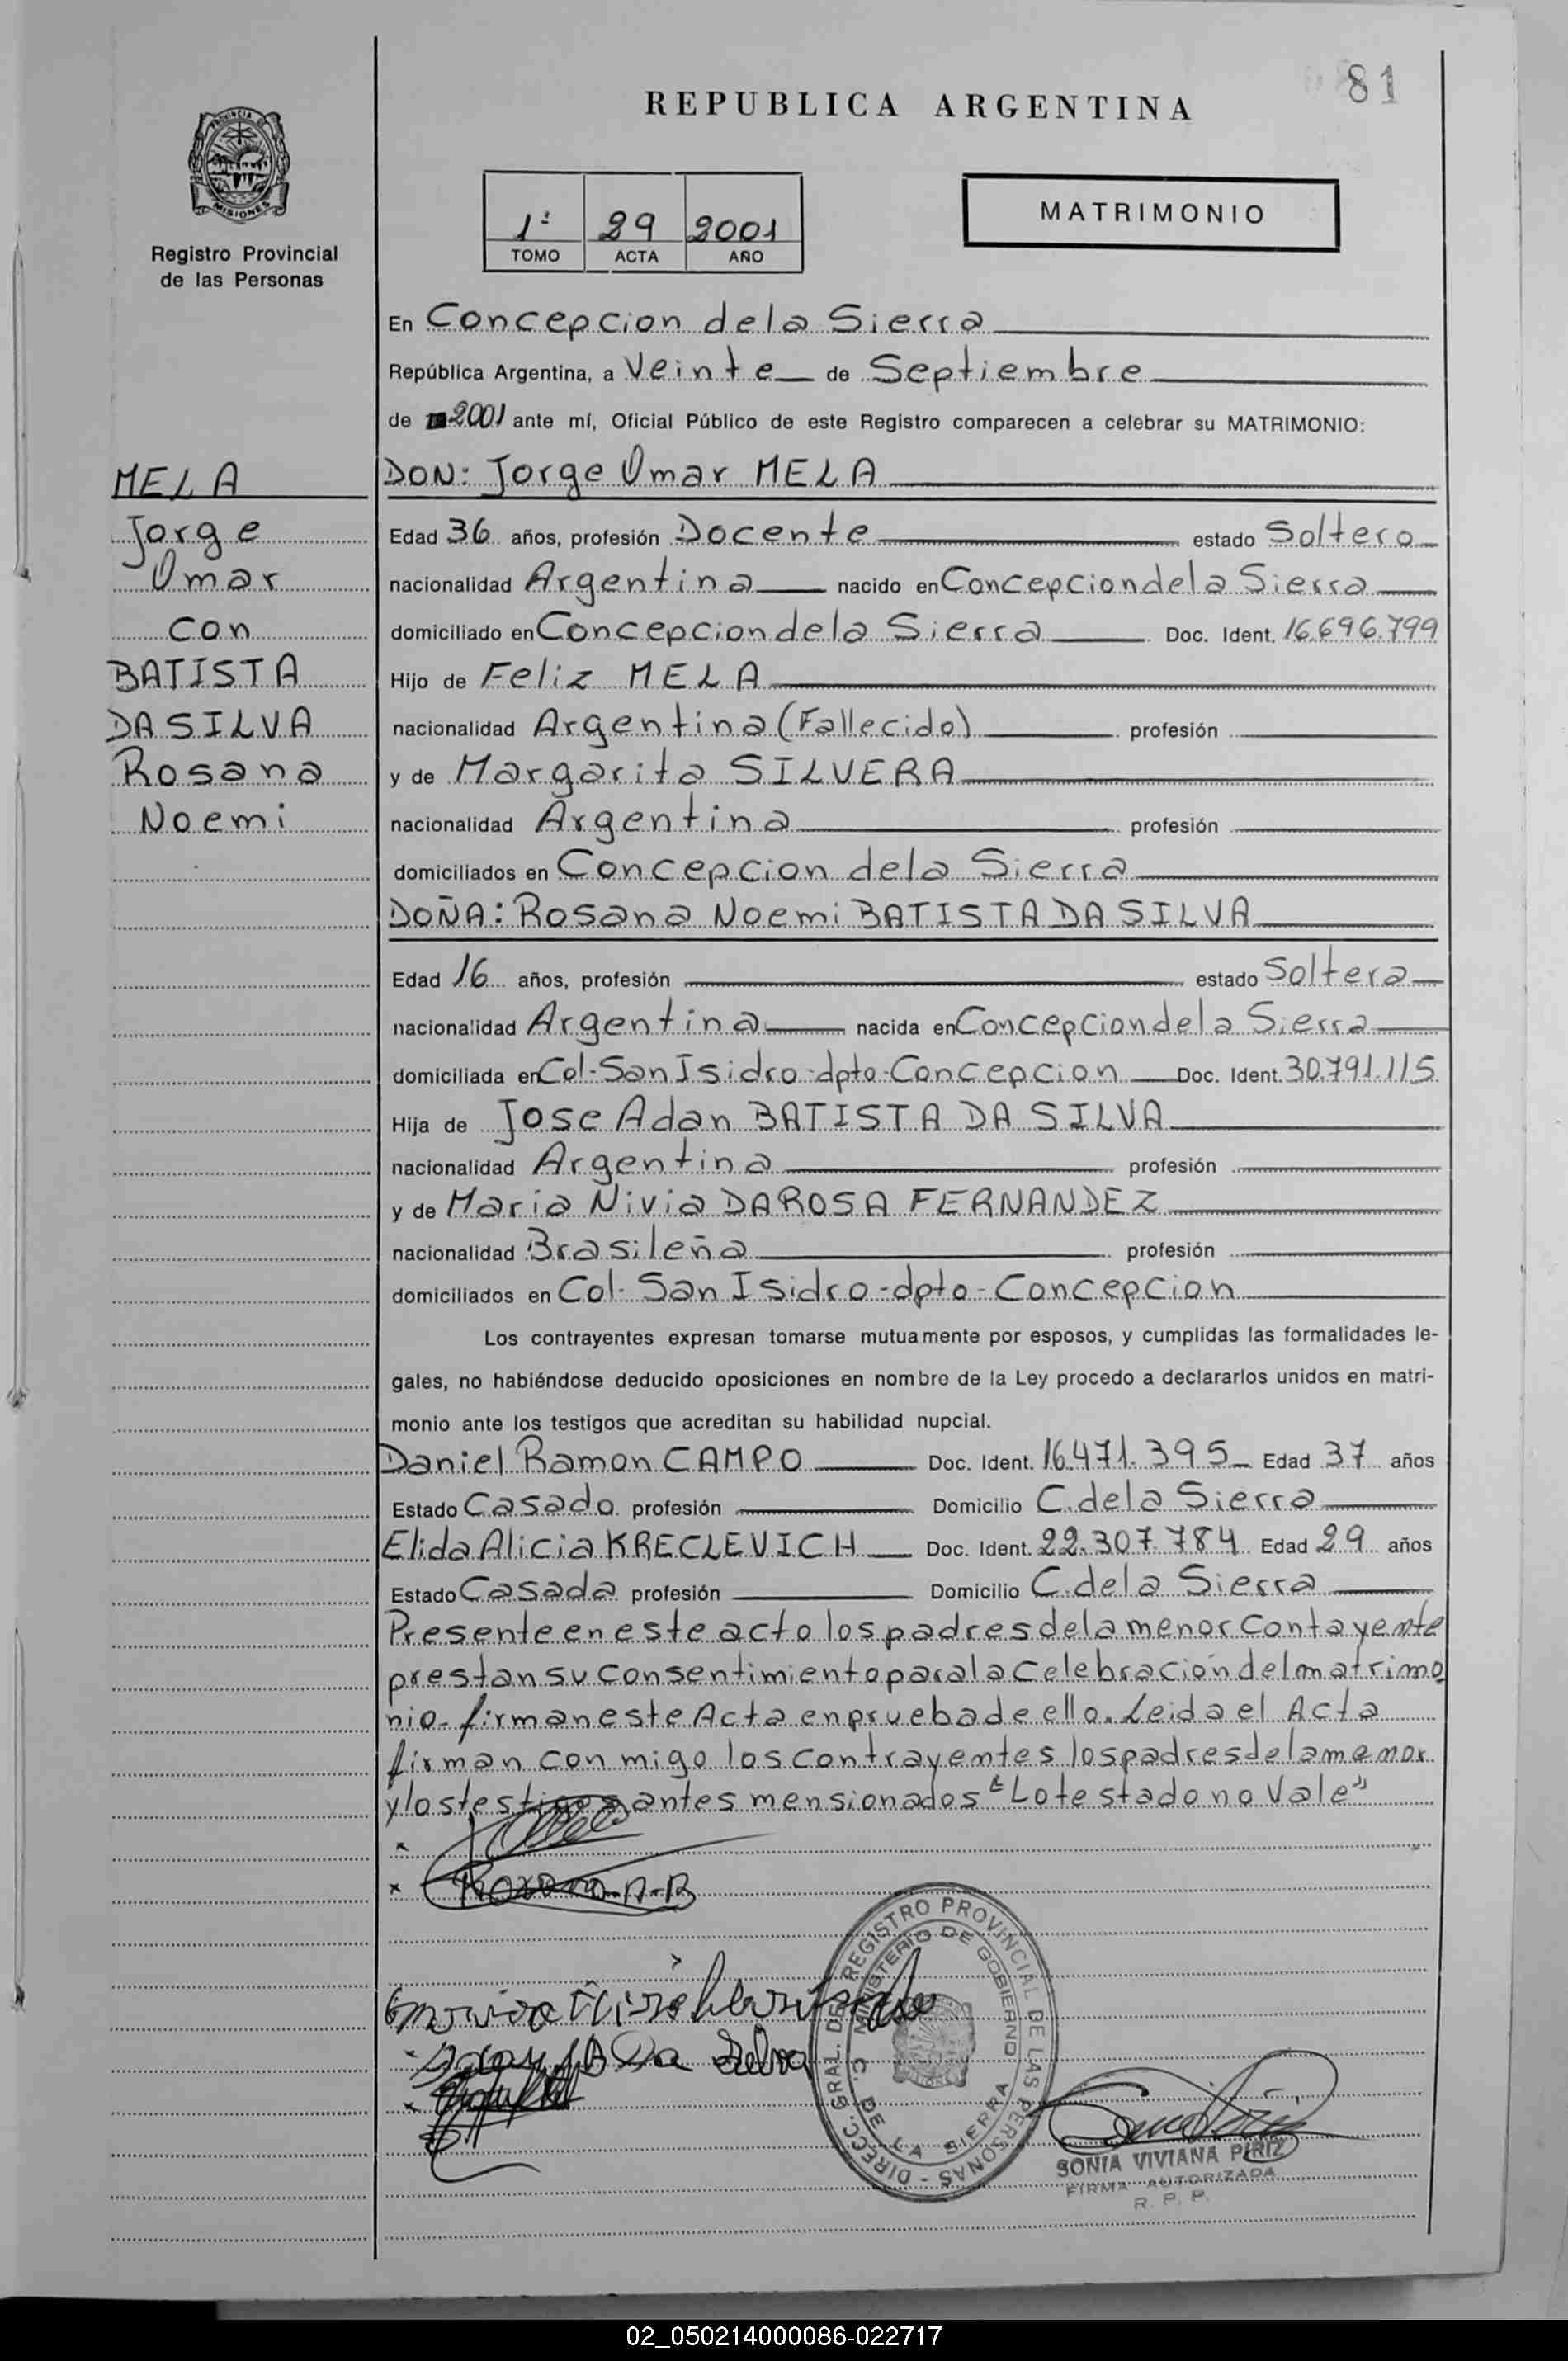 81
REPUBLICA ARGENTINA
PROVINCIA D
MISIONES
Registro Provincial
de las Personas
1º 29 2001
TOMO ACTA AÑO
MATRIMONIO
En Concepcion dela Sierra
República Argentina, a Veinte de Septiembre
de 2001 ante mí, Oficial Público de este Registro comparecen a celebrar su MATRIMONIO:
MELA
Jorge
Omar
con
BATISTA
DA SILVA
Rosana
Noemi
DON: Jorge Omar MELA
Edad 36 años, profesión Docente estado Soltero
nacionalidad Argentina nacido en Concepcion dela Sierra
domiciliado en Concepcion dela Sierra Doc. Ident. 16.696.799
Hijo de Feliz MELA
nacionalidad Argentina (Fallecido) profesión
y de Margarita SILVERA
nacionalidad Argentina profesión
domiciliados en Concepcion dela Sierra
DOÑA: Rosana Noemi BATISTA DA SILVA
Edad 16 años, profesión estado Soltera
nacionalidad Argentina nacida en Concepcion dela Sierra
domiciliada en Col-San Isidro-dpto-Concepcion Doc. Ident. 30.791.115
Hija de Jose Adan BATISTA DA SILVA
nacionalidad Argentina profesión
y de Maria Nivia DAROSA FERNANDEZ
nacionalidad Brasileña profesión
domiciliados en Col-San Isidro-dpto-Concepcion
Los contrayentes expresan tomarse mutuamente por esposos, y cumplidas las formalidades le-
gales, no habiéndose deducido oposiciones en nombre de la Ley procedo a declararlos unidos en matri-
monio ante los testigos que acreditan su habilidad nupcial.
Daniel Ramon CAMPO Doc. Ident. 16.471.395 Edad 37 años
Estado Casado profesión Domicilio C. dela Sierra
Elida Alicia KRECLEVICH Doc. Ident. 22.307.784 Edad 29 años
Estado Casada profesión Domicilio C. dela Sierra
Presente en este acto los padres dela menor Contayente
prestan su Consentimiento para la Celebración del matrimo
nio-firman este Acta en prueba de ello. Leida el Acta
firman con migo los contrayentes los padres de la menor
y los testigos antes mensionados "Lo testado no Vale"
Rosana-N-B
Da Silva
DIRECC. GRAL. DEL REGISTRO PROVINCIAL DE LAS PERSONAS -
MINISTERIO DE GOBIERNO
C. DE LA SIERRA
SONIA VIVIANA PIRIZ
FIRMA AUTORIZADA
R. P. P.
02_050214000086-022717